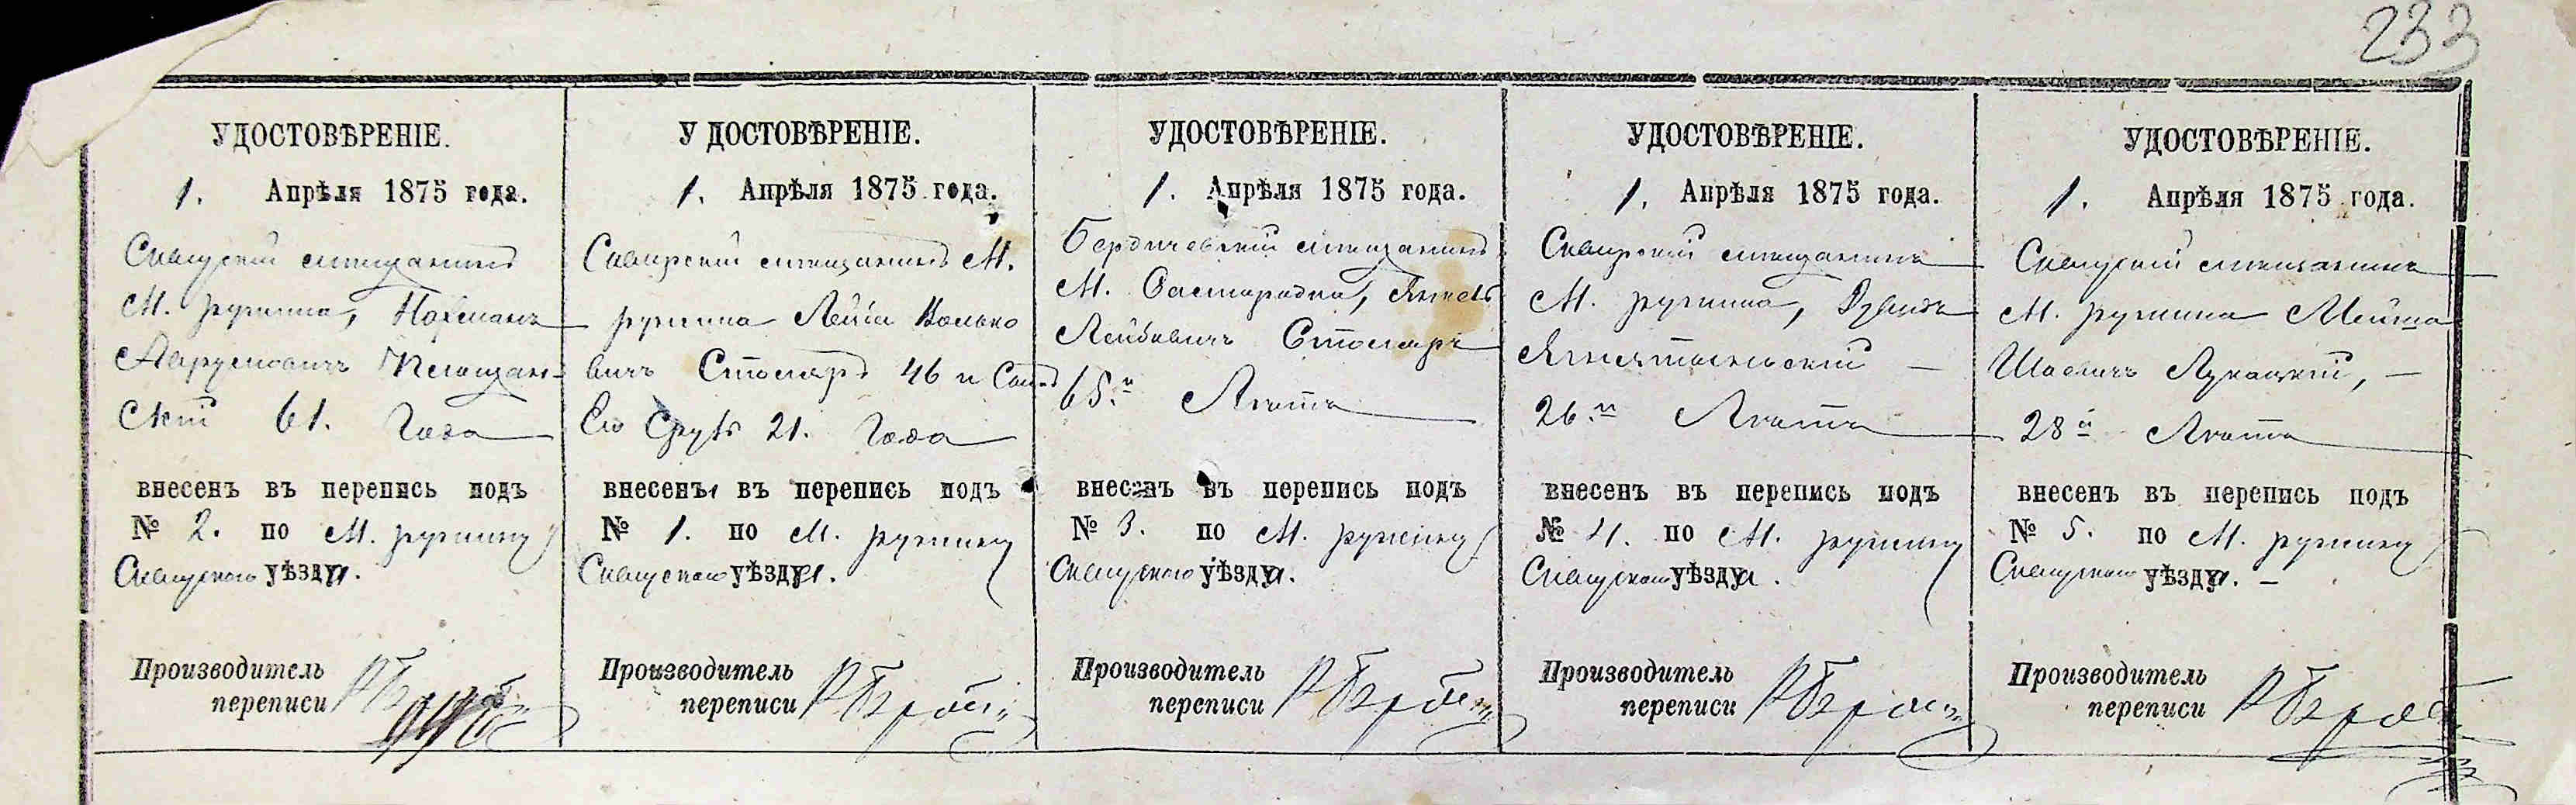 233
УДОСТОВѢРЕНІЕ.
1. Апрѣля 1875 года.
Сквирскій мещанинъ
М. Ружина, Нахманъ
ский 61. Года
внесенъ въ перепись подъ
№ 2. по М. Ружину
Сквирского уѣзда.
Производитель
переписи
УДОСТОВѢРЕНІЕ.
1. Апрѣля 1875 года.
Сквирский мещанинъ М.
Ружина Лейба Волько
вичъ Столяръ 46 и Сынъ
Его 21. Года
внесены въ перепись подъ
№ 1. по М. Ружину
Сквирского уѣзда.
Производитель
переписи
УДОСТОВѢРЕНІЕ.
1. Апрѣля 1875 года.
Бердичевский мещанинъ
М.
Лейбовичъ Столяръ
65.и Лѣтъ
внесенъ въ перепись подъ
№ 3. по М. Ружину
Сквирского уѣзда.
Производитель
переписи
УДОСТОВѢРЕНІЕ.
1. Апрѣля 1875 года.
Сквирский мещанинъ
М. Ружина,
26.и Лѣтъ
внесенъ въ перепись подъ
№ 4. по М. Ружину
Сквирского уѣзда.
Производитель
переписи
УДОСТОВѢРЕНІЕ.
1. Апрѣля 1875 года.
Сквирский мещанинъ
М. Ружина
28и Лѣтъ
внесенъ въ перепись подъ
№ 5. по М. Ружину
Сквирского уѣзда. —
Производитель
переписи